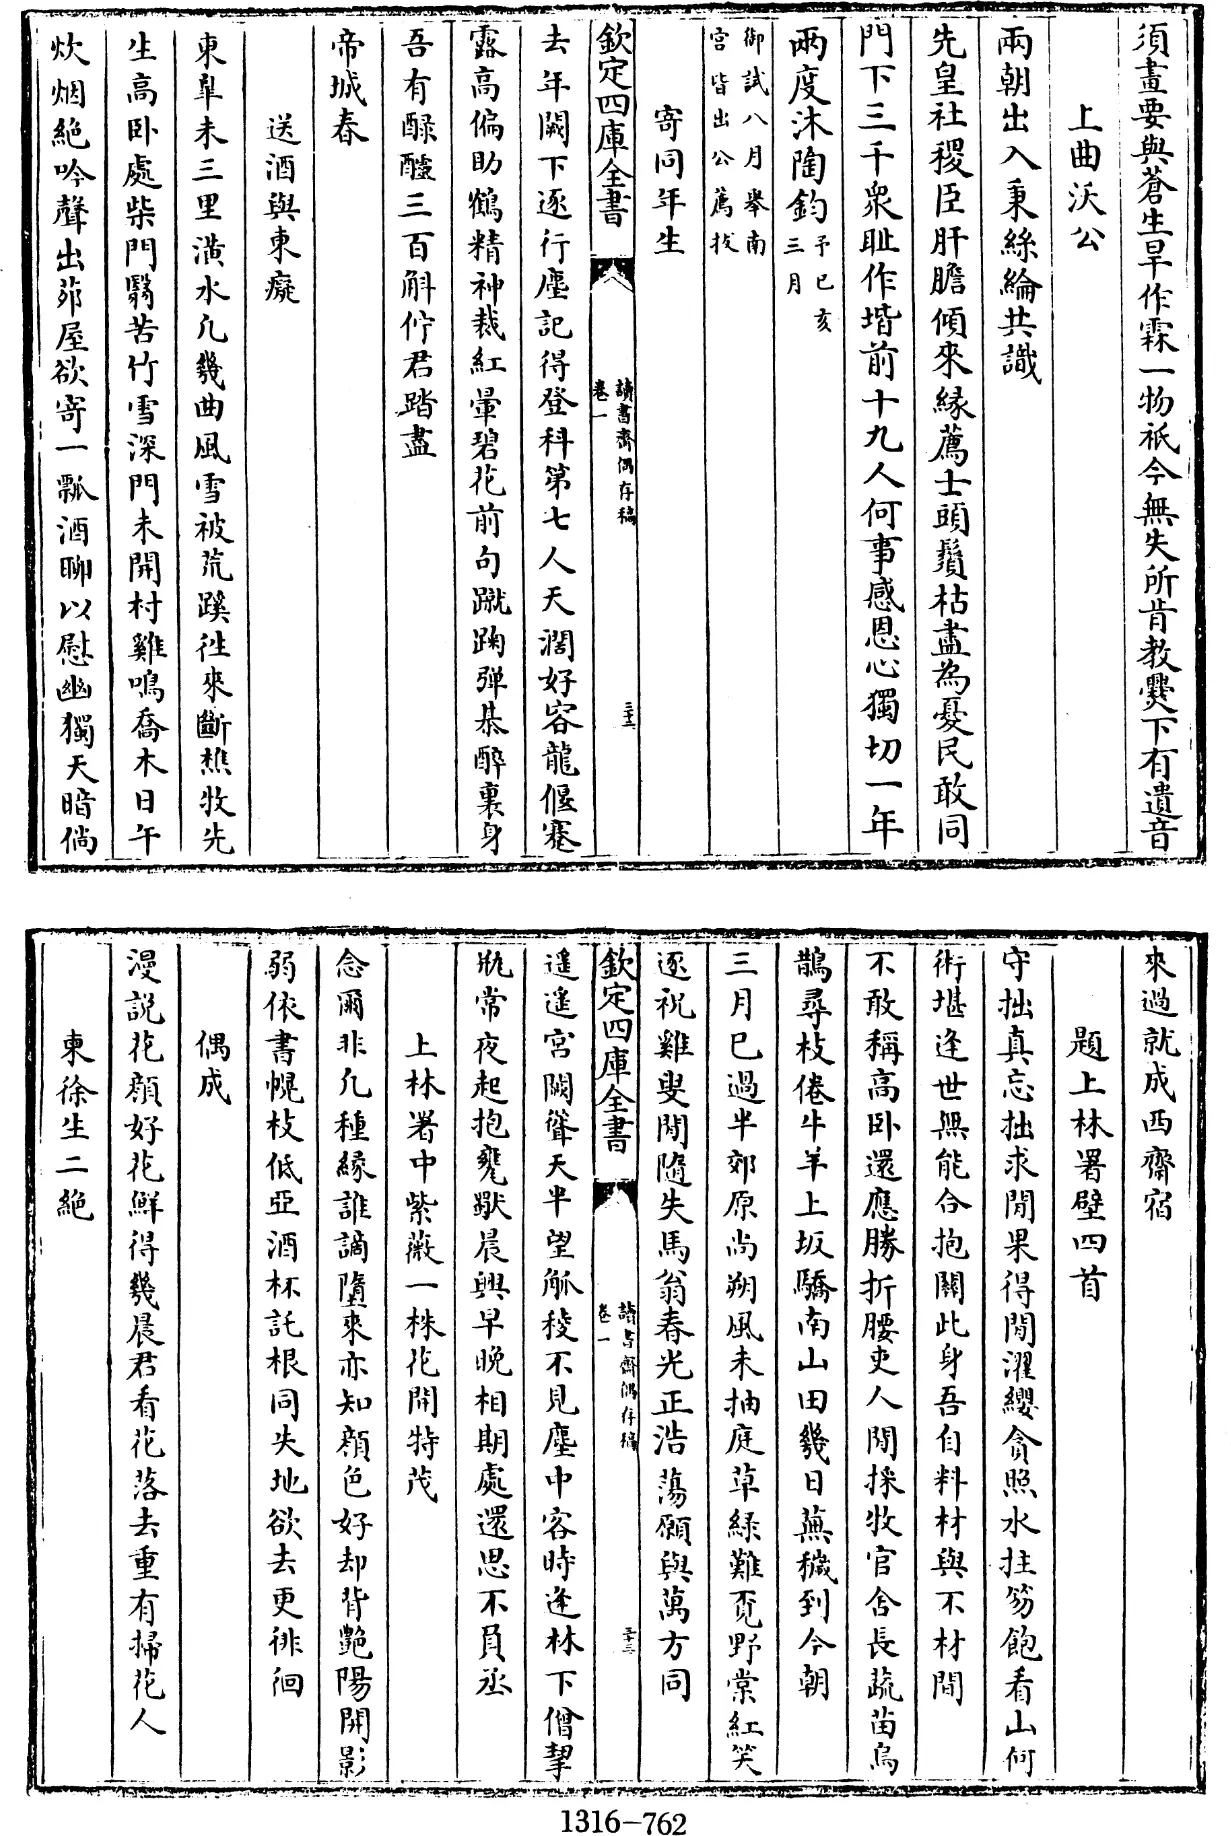 須畫要與蒼生旱作霖一物祇今無失所肯教爨下有遺音
上曲沃公
兩朝出入秉絲綸共識
先皇社稷臣肝膽傾來緣薦士頭鬚枯盡為憂民敢同
門下三千衆耻作堦前十九人何事感恩心獨切一年
兩度沐陶鈞予己亥三月
御試八月舉南宮皆出公薦拔
寄同年生
欽定四庫全書
讀書齋偶存稿
卷一
三十二
去年闕下逐行塵記得登科第七人天濶好容龍偃蹇
露高偏助鶴精神裁紅暈碧花前句蹴踘彈棊醉裏身
吾有醁醽三百斛佇君踏盡
帝城春
送酒與東癡
東臯未三里潢水凡幾曲風雪被荒蹊徃來斷樵牧先
生高卧處柴門翳苦竹雪深門未開村雞鳴喬木日午
炊烟絶吟聲出茆屋欲寄一瓢酒聊以慰幽獨天暗倘
來過就成西齋宿
題上林署壁四首
守拙真忘拙求閒果得閒濯纓貪照水拄笏飽看山何
術堪逢世無能合抱關此身吾自料材與不材間
不敢稱高卧還應勝折腰吏人閒採牧官舍長蔬苗烏
鵲尋枝倦牛羊上坂驕南山田幾日蕪穢到今朝
三月巳過半郊原尚朔風未抽庭草緑難覔野棠紅笑
逐祝雞叟閒隨失馬翁春光正浩蕩願與萬方同
欽定四庫全書
讀書齋偶存稿
卷一
三十三
遥遥宫闕聳天半望觚稜不見塵中客時逢林下僧挈
瓶常夜起抱甕歇晨興早晩相期處還思不負丞
上林署中紫薇一株花開特茂
念爾非凡種緣誰謫墮來亦知顔色好却背艶陽開影
弱依書幌枝低亞酒杯託根同失地欲去更徘徊
偶成
漫說花顔好花鮮得幾晨君看花落去重有掃花人
柬徐生二絶
1316-762